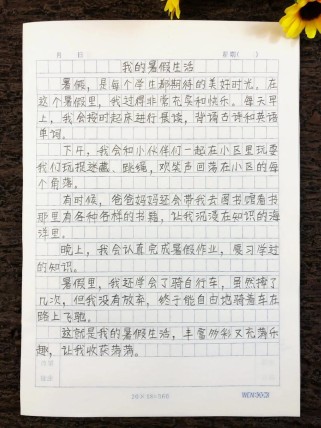 我的暑假生活
暑假，是每个学生都期待的美好时光。在
这个暑假里，我过得非常充实和快乐。每天早
上，我会按时起床进行晨读，背诵古诗和英语
单词。
下午，我会和小伙伴们一起在小区里玩耍
我们玩捉迷藏、跳绳，欢笑声回荡在小区的每
个角落。
有时候，爸爸妈妈还会带我去图书馆看书
那里有各种各样的书籍，让我沉浸在知识的海
洋里。
晚上，我会认真完成暑假作业，复习学过
的知识。
暑假里，我还学会了骑自行车，虽然摔了
几次，但我没有放弃，终于能自由地骑着车在
路上飞驰。
这就是我的暑假生活，丰富多彩又充满乐
趣，让我收获满满。